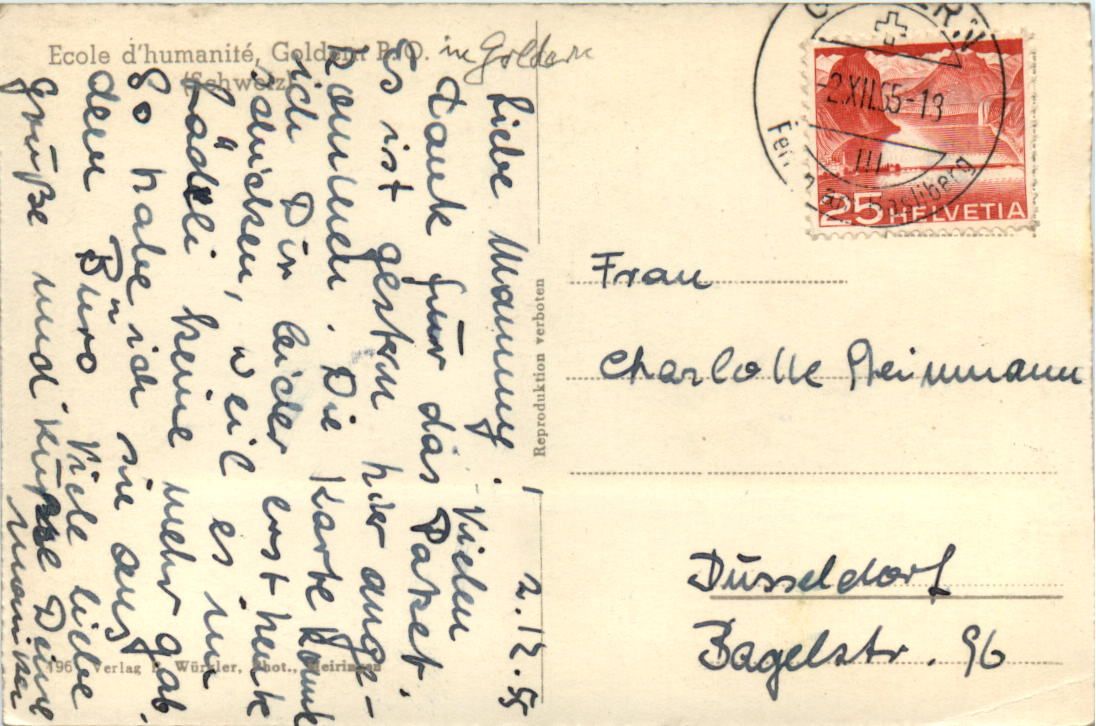 Ecole d'humanité, Goldern B. O. in Goldern
(Schweiz)
2.12.55
Liebe Mammy! Vielen
Dank für das Paket.
Es ist gestern hier ange-
kommen. Die Karte konnte
ich Dir leider erst heute
schicken, weil es im
Lädeli keine mehr gab.
So habe ich sie aus
dem Büro. Viele liebe
Grüße und Küsse Deine
Reproduktion verboten
496 Verlag Würgler, Phot., Meiringen
-2.XII.55-18
III
Hasliberg
25 HELVETIA
Frau
Charlotte
Düsseldorf
Bagelstr. 96